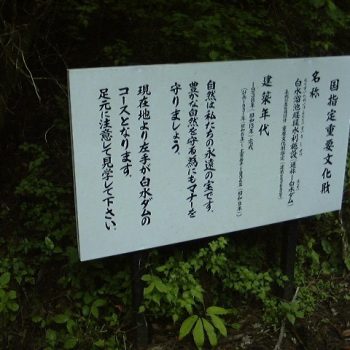 国指定重要文化財
名称
白水溜池堰堤水利施設（通称：白水ダム）
建築年代
自然は私たちの永遠の宝です。
豊かな自然を守る為にもマナーを
守りましょう。
現在地より左手が白水ダムの
コースとなります。
足元に注意して見学して下さい。